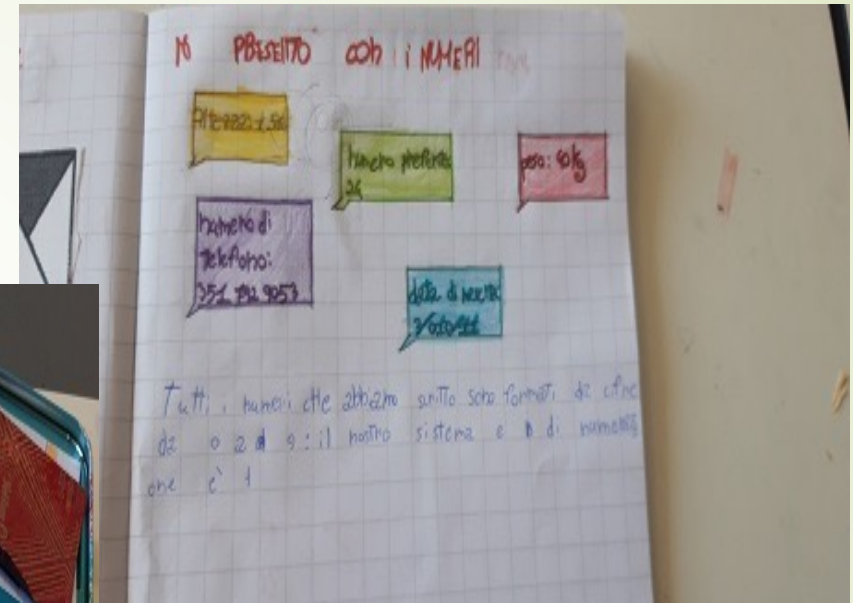 MI PRESENTO con i NUMERI
Altezza: 1.50
numero preferito
24
peso: 40 kg
numero di
telefono:
351 792 9053
data di nascita
Tutti i numeri che abbiamo scritto sono formati da cifre
da 0 a 9: il nostro sistema e di numerazi
one è 1